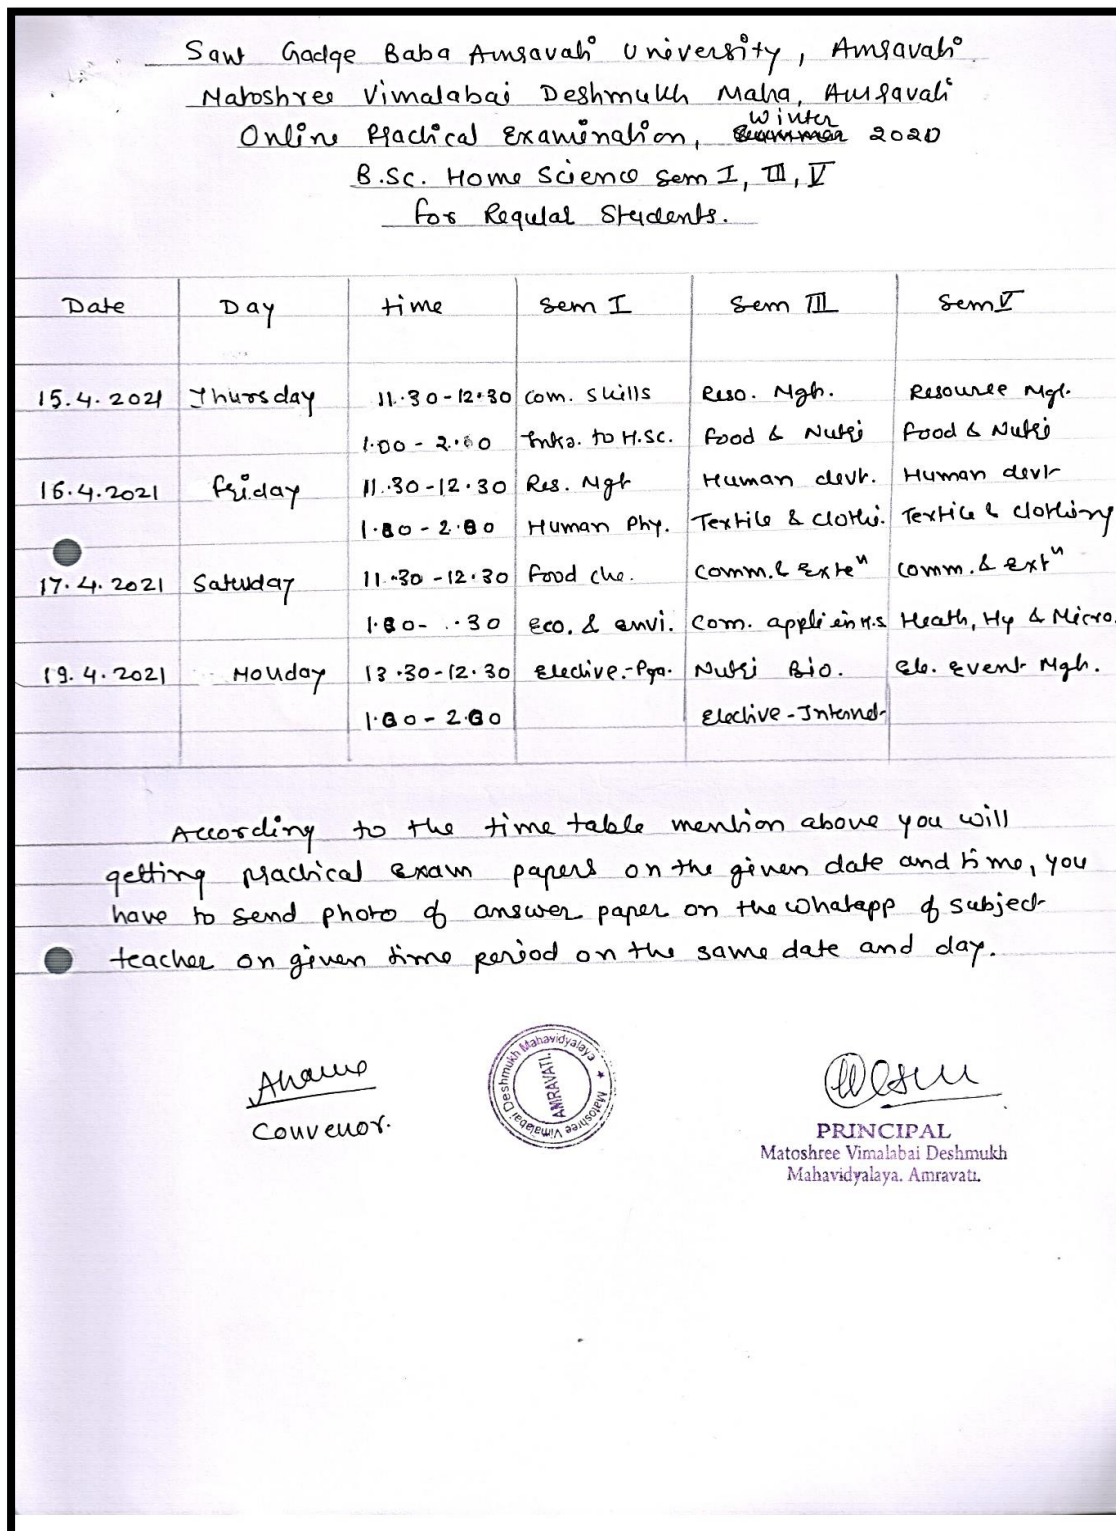 Sant Gadge Baba Amravati University, Amravati
Matoshree Vimalabai Deshmukh Maha, Amravati
Online Practical Examination, Winter 2020
B.Sc. Home Science Sem I, III, V
for Regular Students.
Date Day time Sem I Sem III Sem V
15.4.2021 Thursday 11.30-12.30 Com. Skills Reso. Mgt. Resource Mgt.
1.00-2.00 Intro. to H.Sc. Food & Nutri Food & Nutri
16.4.2021 Friday 11.30-12.30 Res. Mgt Human devt. Human devt
Human Phy. Textile & Clothi. Textile & Clothing
17.4.2021 Saturday 11.30-12.30 Food che. Comm. & Exten Comm. & Extn
Eco. & envi. Com. appli in H.S Heath, Hy & Micro.
19.4.2021 Monday Elective-Pya. Nutri Bio. Ele. Event Mgt.
Elective-Internet
According to the time table mention above you will
getting practical exam papers on the given date and time, you
have to send photo of answer paper on the whatapp of subject
teacher on given time period on the same date and day.
Convenor.
Matoshree Vimalabai Deshmukh Mahavidyalaya ★
AMRAVATI.
PRINCIPAL
Matoshree Vimalabai Deshmukh
Mahavidyalaya. Amravati.